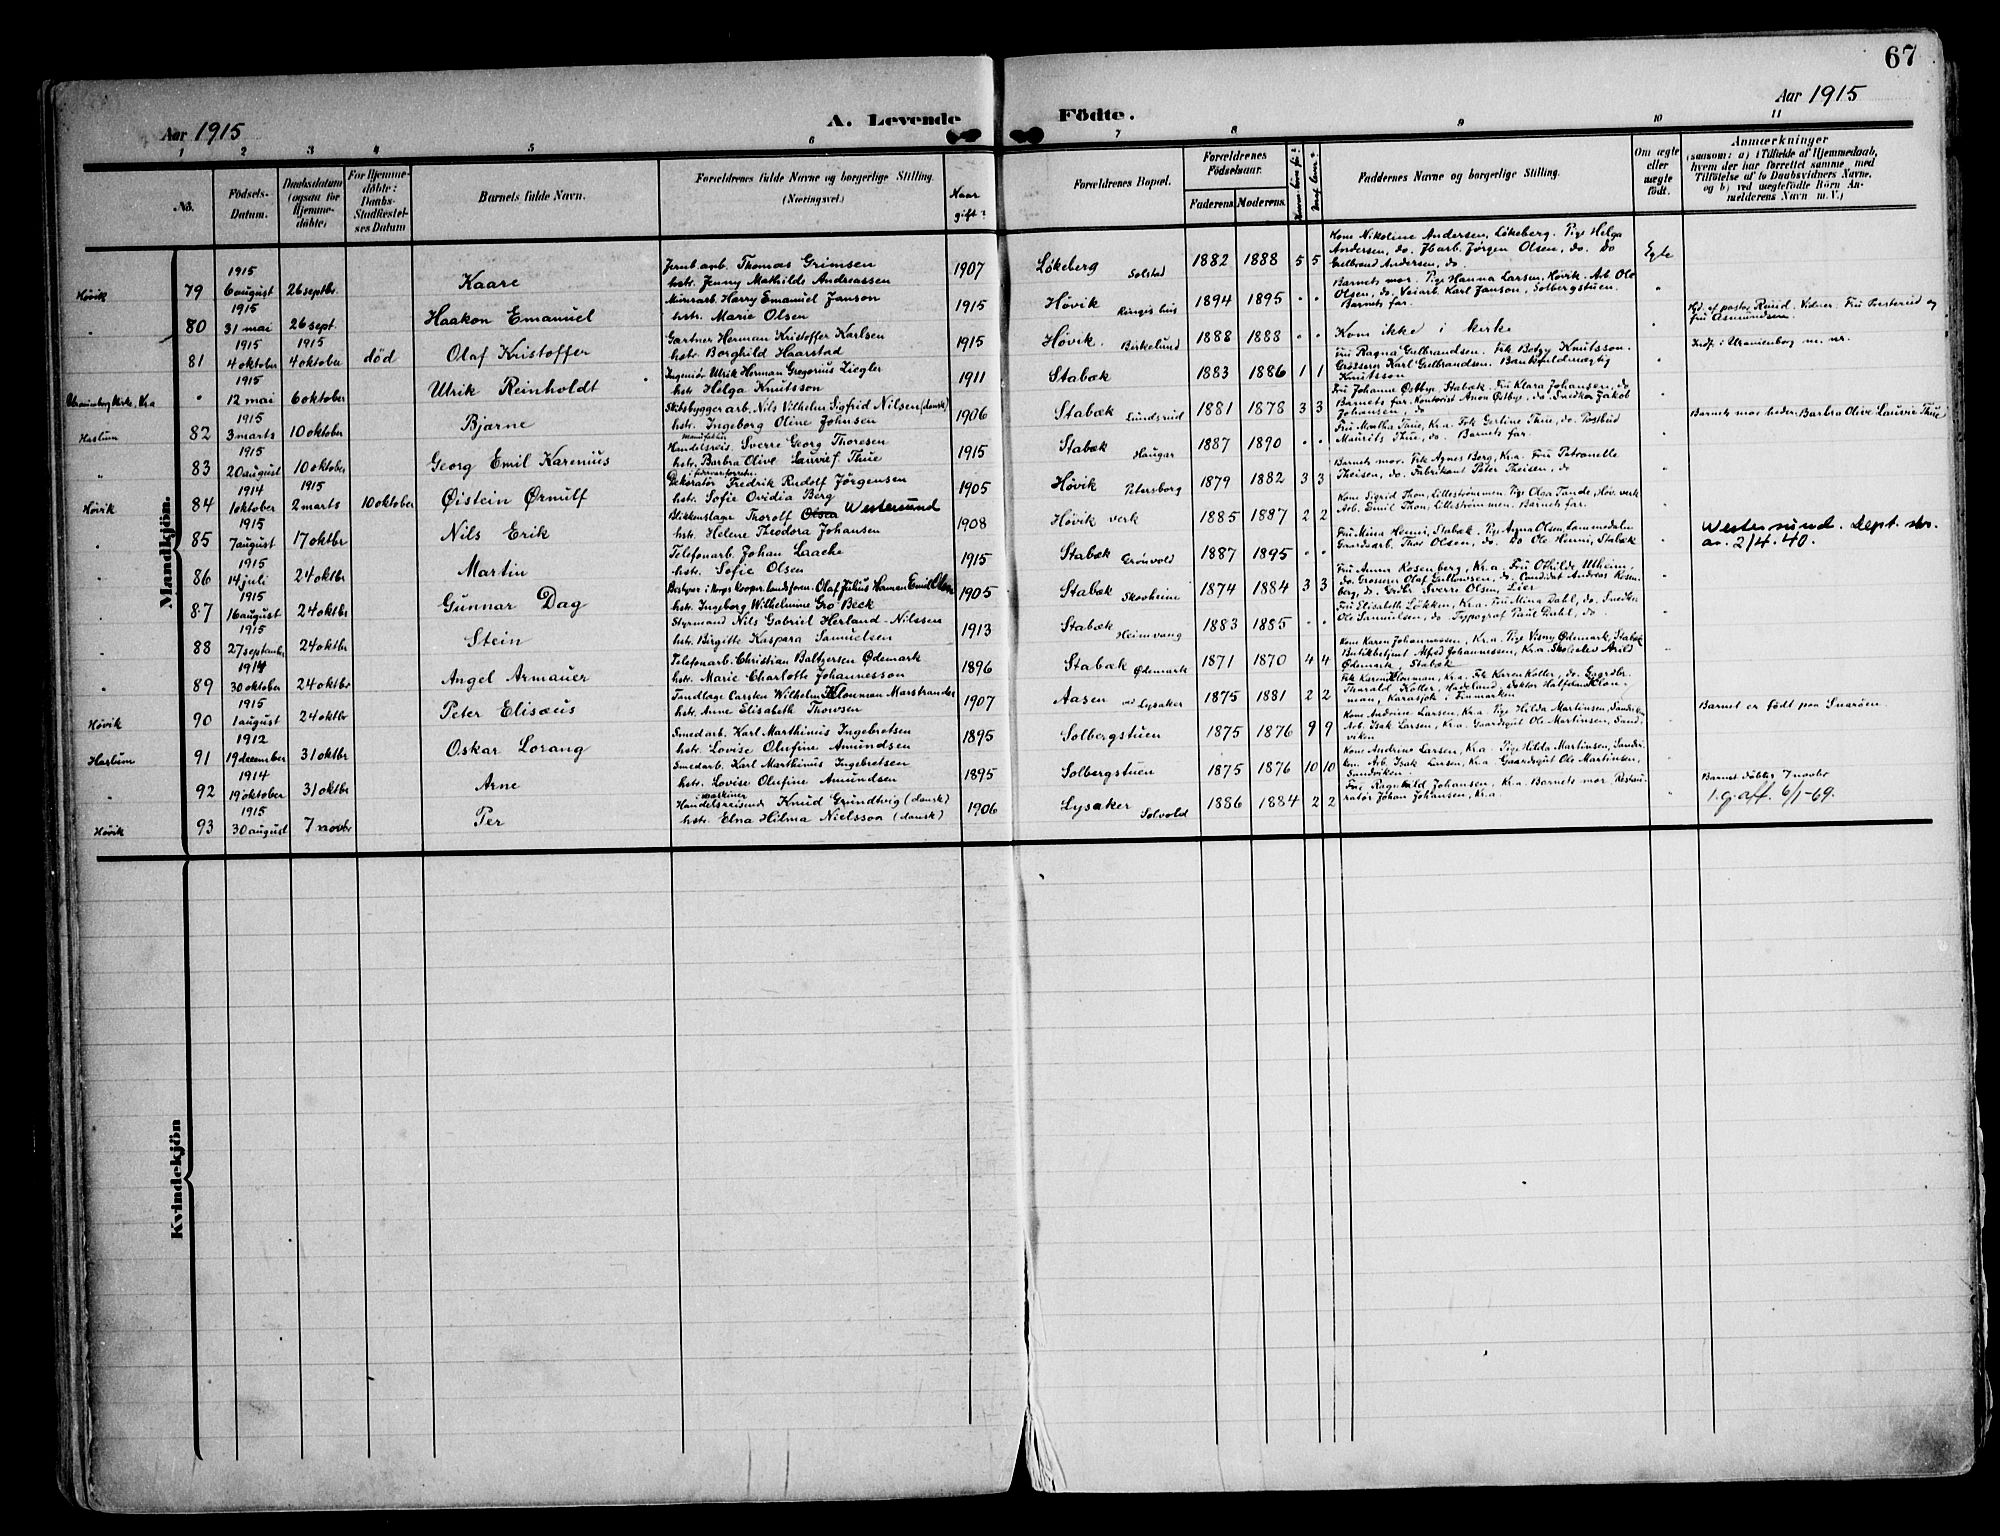 67
Aar 1915
A. Levende
Födte.
Aar 1915
1 2 3 4 5 6 7 8 9 10 11
No.
Födsels-
Datum.
Daabsdatum
(ogsaa for
Hjemme-
döbte)
For Hjemme-
döbte:
Daabs-
Stadfæstel-
ses Datum
Barnets fulde Navn.
Forældrenes fulde Navne og borgerlige Stilling.
(Næringsvei.)
Naar
gift?
Forældrenes Bopæl.
Forældrenes
Födselsaar.
Faderens. Moderens.
Faddernes Navne og borgerlige Stilling.
Om ægte
eller
uægte
født.
Anmærkninger
(saasom: a) i Tilfælde af Hjemmedaab,
hvem der har forrettet samme, med
Tilföielse af to Daabsvidners Navne,
og b) ved uægtefödte Börn An-
melderens Navn m. V.)
Mandkjön.
Høvik 79 1915 6 august 26 septbr. Kaare
Jernb.arb. Thomas Grimsen
hstr. Jenny Mathilde Andreassen
1907 Løkeberg Solstad 1882 1888 5 5
Kone Nikoline Andersen, Løkeberg. Pige Helga
Andersen, do. Jbarb. Jørgen Olsen, do. Do
Gulbrand Andersen, do.
Egte
" 80 1915 31 mai 26 sept. Haakon Emanuel
Minerarb. Harry Emanuel Janson
hstr. Marie Olsen
1915 Høvik Ringishus 1894 1895 " "
Barnets mor. Pige Hanna Larsen, Høvik. Arb. Ole
Olsen, do. Veiarb. Karl Janson, Solbergstuen.
Barnets far.
"
81 1915 4 oktober 1915 4 oktober død Olaf Kristoffer
Gartner Herman Kristoffer Karlsen
hstr. Borghild Haarstad
1915 Høvik. Birkelund 1888 1888 " "
Kom ikke i kirke
"
Hd. af pastor Ruud. Vidner: Fru Porsterud og
fru Asmundsen.
Uranienborg kirke, Kr.a " 1915 12 mai 6 oktober Ulrik Reinholdt
Ingeniør Ulrik Herman Gregorius Ziegler
hstr. Helga Knutsson
1911 Stabæk 1883 1886 1 1
Fru Ragna Gulbrandsen. Frk. Botgy Knutsson.
Grosserer Karl Gulbrandsen. Bankfuldmægtig
Knutsson
"
Indf. i Uranienborg m. nr.
Haslum 82 1915 3 marts 10 oktober Bjarne
Skibsbyggerarb. Nils Vilhelm Sigfrid Nilsen (dansk)
hstr. Ingeborg Oline Johnsen
1906 Stabæk Lundsrud 1881 1878 3 3
Fru Johanne Østbye, Stabæk. Fru Klara Johansen, do
Barnets far. Kontorist Anon Østbye, do. Snedker Jakob
Johansen, do
"
" 83 1915 20 august 10 oktober Georg Emil Karenius
manufaktur
Handelsreis. Sverre Georg Thoresen
hstr. Barbra Olive Lauvief. Thue
1915 Stabæk Haugar 1887 1890 " "
Fru Martha Thue, Kr.a. Frk. Gertine Thue, do. Postbud
Maurits Thue, do. Barnets far.
"
Barnets mor heder: Barbra Olive Lauvie Thue
Høvik 84 1914 1 oktober 1915 2 marts 10 oktober Øistein Ørnulf
Dekoratør Fredrik Rudolf Jørgensen
hstr. Sofie Ovidia Berg
1905 Høvik Petersborg 1879 1882 3 3
Barnets mor. Frk. Agnes Berg, Kr.a. Fru Petronelle
Theisen, do. Fabrikant Peter Theisen, do
"
" 85 1915 7 august 17 oktbr. Nils Erik
Blikkenslage Thorolf Olsen Westersund
hstr. Helene Theodora Johansen
1908 Høvik verk 1885 1887 2 2
Kone Sigrid Thon, Lillestrømmen. Pige Olga Tande, Høv. verk
Arb. Emil Thon, Lillestrømmen. Barnets far.
"
Westersund. Dept. skr.
av. 2/4. 40.
" 86 1915 14 juli 24 oktbr Martin
Telefonarb. Johan Laache
hstr. Sofie Olsen
1915 Stabæk Grønvold 1887 1895 " "
Fru Mina Henni, Stabæk. Pige Agna Olsen, Lammedalen
Gaardsarb. Thor Olsen, do. Do Ole Henni, Stabæk
"
" 87 1915 16 august 24 oktbr Gunnar Dag
Bestyrer i Norges Kooper. landsforen. Olaf Julius Herman Emil Olsen
hstr. Ingeborg Wilhelmine Gro Beck
1905 Stabæk Skovheim 1874 1884 3 3
Fru Anna Rosenberg, Kr.a. Fru Othilde Utheim,
do. Grosserer Olaf Gullowsen, do. Candidat Andreas Rosen-
berg, do. Grdbr Sverre Olsen, Lier
"
" 88 1915 27 september 24 oktbr. Stein
Styrmand Nils Gabriel Herland-Nilssen
hstr. Birgitte Kaspara Samuelsen
1913 Stabæk Heimvang 1883 1885 " "
Fru Elisabeth Løkken, Kr.a. Fru Mina Dahl, do. Snedker
Ole Samuelsen, do. Typograf Paul Dahl, do.
"
" 89 1914 30 oktober 24 oktbr Angel Armauer
Telefonarb. Christian Baltzersen Ødemark
hstr. Marie Charlotte Johannesson
1896 Stabæk Ødemark 1871 1870 4 4
Kone Karen Johannessen, Kr.a. Pige Visny Ødemark, Stabæk
Butikbetjent Alfred Johannessen, Kr.a. Skoleelev Arild
Ødemark, Stabæk
"
Høvik 90 1915 1 august 24 oktbr Peter Elisæus
Tandlæge Carsten Wilhelm Klouman Marstrander
hstr. Anne Elisabeth Thowsen
1907 Aasen ved Lysaker 1875 1881 2 2
Frk. Karen Klouman, Kr.a. Frk. Karen Koller, do. Gaardbr.
Tharald Koller, Hadeland. Doktor Halfdan Klou-
man, Karasjok i Finmarken
"
Barnet er født paa Snarøen.
Haslum 91 1912 19 december 31 oktbr Oskar Lorang
Smedarb. Karl Marthinius Ingebretsen
hstr. Lovise Olufine Amundsen
1895 Solbergstuen 1875 1876 9 9
Kone Andrine Larsen, Kr.a. Pige Hilda Martinsen, Sandviken
Arb. Isak Larsen, Kr.a. Gaardsgut Ole Martinsen, Sand-
viken
"
" 92 1914 19 oktober 31 oktbr Arne
Smedarb. Karl Marthinius Ingebretsen
hstr. Lovise Olufine Amundsen
1895 Solbergstuen 1875 1876 10 10
Kone Andrine Larsen, Kr.a. Pige Hilda Martinsen, Sandvi-
ken. Arb. Isak Larsen, Kr.a. Gaardsgut Ole Martinsen,
Sandviken.
"
Høvik 93 1915 30 august 7 novbr Per
maskiner
Handelsreisende Knud Grundtvig (dansk)
hstr. Elna Hilma Nielsson (dansk)
1906 Lysaker Solvold 1886 1884 2 2
Fru Ragnhild Johansen, Kr.a. Barnets mor. Restau-
ratør Johan Johansen, Kr.a.
"
Barnet døbtes 7 novbr
1. g. aff. 6/1-69.
Kvindekjön